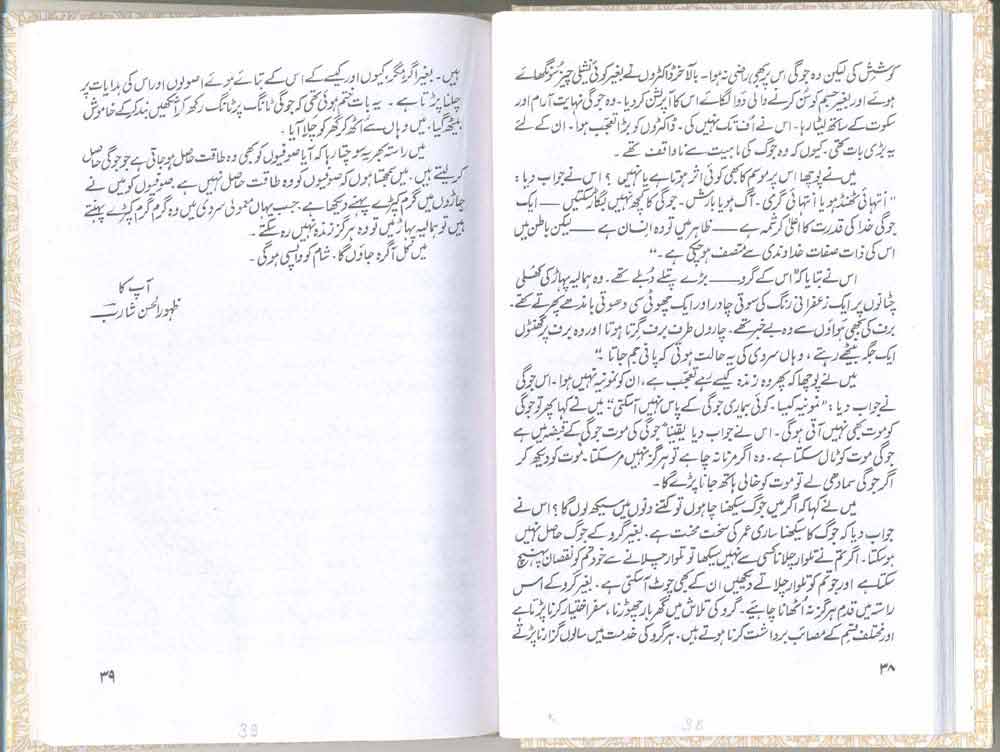 کوشش کی لیکن وہ جوگی اس پر بھی راضی نہ ہوا۔ بالآخر ڈاکٹروں نے بغیر کوئی نشیلی چیز سونگھائے
ہوئے اور بغیر جسم کو سُن کرنے والی دوا لگائے اس کا آپریشن کر دیا۔ وہ جوگی نہایت آرام اور
سکوت کے ساتھ لیٹا رہا۔ اس نے اُف تک نہیں کی۔ ڈاکٹروں کو بڑا تعجب ہوا۔ ان کے لئے
یہ بڑی بات تھی، کیوں کہ وہ جوگ کی ماہیت سے ناواقف تھے۔
میں نے پوچھا اس پر موسم کا بھی کوئی اثر ہوتا ہے یا نہیں؟ اس نے جواب دیا:
"انتہائی ٹھنڈ ہو یا انتہائی گرمی۔ آگ ہو یا بارش۔ جوگی کا کچھ نہیں بگاڑ سکتیں — ایک
جوگی خدا کی قدرت کا اعلیٰ کرشمہ ہے — ظاہر میں تو وہ انسان ہے — لیکن باطن میں
اس کی ذات صفات خداوندی سے متصف ہو چکی ہے۔"
اس نے بتایا کہ "اس کے گرو — بڑے پتلے دبلے تھے۔ وہ ہمالیہ پہاڑ کی کھلی
چٹانوں پر ایک زعفرانی رنگ کی سوتی چادر اور ایک چھوٹی سی دھوتی باندھے پھرتے تھے۔
برف کی ہواؤں سے وہ بے خبر تھے۔ چاروں طرف برف گرتا ہوتا اور وہ برف پر گھنٹوں
ایک جگہ بیٹھے رہتے، وہاں سردی کی یہ حالت ہوتی کہ پانی جم جاتا۔"
میں نے پوچھا کہ پھر وہ زندہ کیسے رہے تعجب ہے، ان کو نمونیہ نہیں ہوا۔ اس جوگی
نے جواب دیا: "نمونیہ کیسا۔ کوئی بیماری جوگی کے پاس نہیں آ سکتی" میں نے کہا پھر تو جوگی
کو موت بھی نہیں آتی ہوگی۔ اس نے جواب دیا یقیناً جوگی کی موت جوگی کے قبضہ میں ہے
جوگی موت کو ٹال سکتا ہے۔ وہ اگر مرنا نہ چاہے تو ہرگز نہیں مر سکتا۔ موت کو دیکھ کر
اگر جوگی سمادھی لے تو موت کو خالی ہاتھ جانا پڑے گا۔
میں نے کہا کہ اگر میں جوگ سیکھنا چاہوں تو کتنے دنوں میں سیکھ لوں گا؟ اس نے
جواب دیا کہ جوگ کا سیکھنا ساری عمر کی سخت محنت ہے۔ بغیر گرو کے جوگ حاصل نہیں
ہو سکتا۔ اگر تم نے تلوار چلانا کسی سے نہیں سیکھا تو تلوار چلانے سے خود تم کو نقصان پہنچ
سکتا ہے اور جو تم کو تلوار چلاتے دیکھیں ان کے بھی چوٹ آ سکتی ہے۔ بغیر گرو کے اس
راستہ میں قدم ہرگز نہ اُٹھانا چاہیے۔ گرو کی تلاش میں گھر بار چھوڑنا، سفر اختیار کرنا پڑتا ہے
اور مختلف قسم کے مصائب برداشت کرنا ہوتے ہیں۔ ہر گرو کی خدمت میں سالوں گزارنا پڑتے
۳۸
38
ہیں۔ بغیر اگر، مگر، کیوں اور کیسے کے اس کے بتائے ہوئے اصولوں اور اس کی ہدایات پر
چلنا پڑتا ہے۔ یہ بات ختم ہوئی تھی کہ جوگی ٹانگ پر ٹانگ رکھ کر آنکھیں بند کر کے خاموش
بیٹھ گیا۔ میں وہاں سے اُٹھ کر گھر کو چلا آیا۔
میں راستہ بھر یہ سوچتا رہا کہ آیا صوفیوں کو بھی وہ طاقت حاصل ہو جاتی ہے جو جوگی حاصل
کر لیتے ہیں۔ میں سمجھتا ہوں کہ صوفیوں کو وہ طاقت حاصل نہیں ہے صوفیوں کو میں نے
جاڑوں میں گرم کپڑے پہنے دیکھا ہے۔ جب یہاں معمولی سردی میں وہ گرم گرم کپڑے پہنتے
ہیں تو ہمالیہ پہاڑ میں تو وہ ہرگز زندہ نہیں رہ سکتے۔
میں کل آگرہ جاؤں گا۔ شام کو واپسی ہوگی۔
آپ کا
ظہور الحسن شارب
۳۹
39